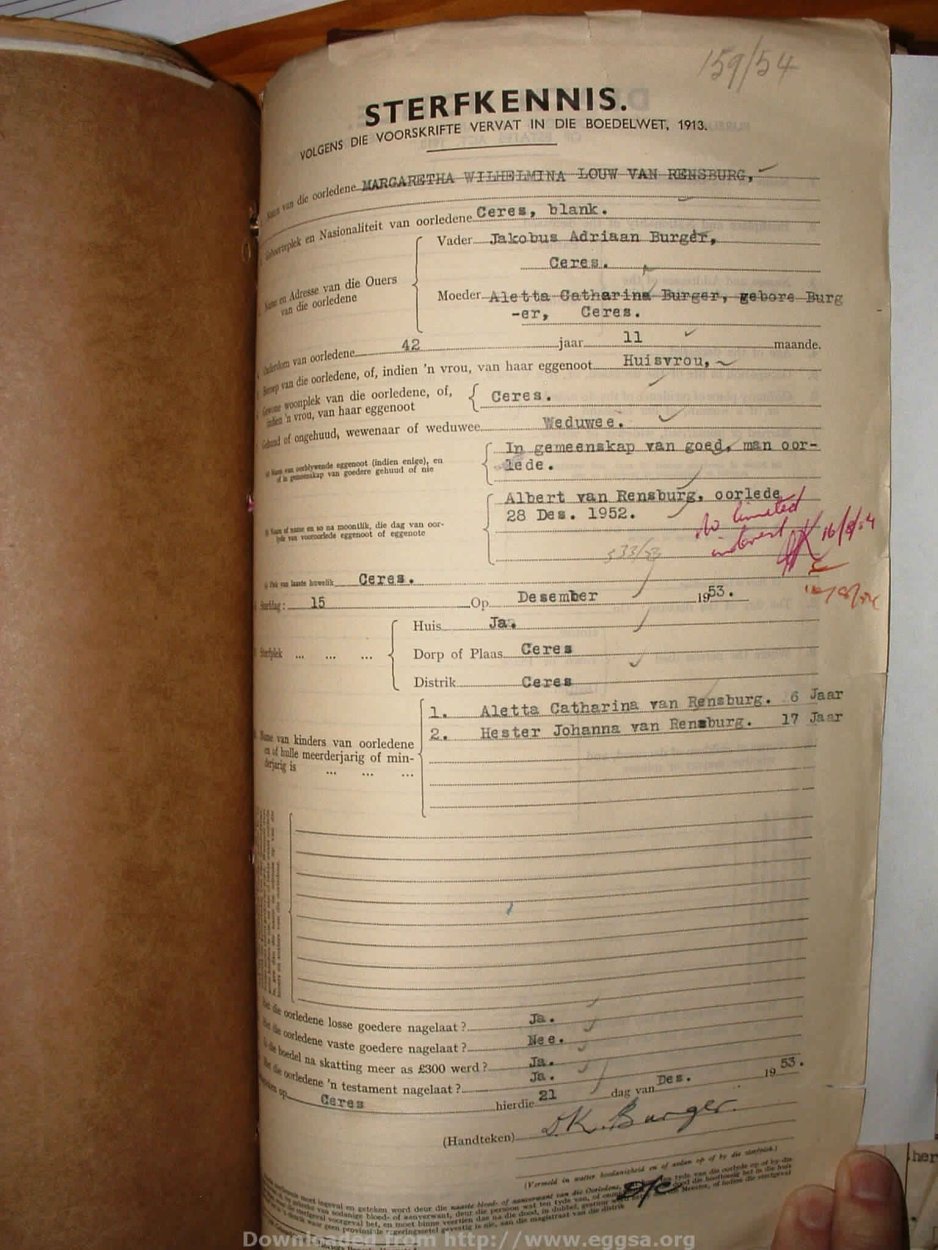 159/54
STERFKENNIS.
VOLGENS DIE VOORSKRIFTE VERVAT IN DIE BOEDELWET, 1913.
van die oorledene MARGARETHA WILHELMINA LOUW VAN RENSBURG,
en Nasionaliteit van oorledene Ceres, blank.
Vader Jakobus Adriaan Burger,
Ceres.
en Adresse van die Ouers
van die oorledene
Moeder Aletta Catharina Burger, gebore Burg
-er, Ceres.
van oorledene 42 jaar 11 maande.
van die oorledene, of, indien 'n vrou, van haar eggenoot Huisvrou,
woonplek van die oorledene, of,
indien 'n vrou, van haar eggenoot
Ceres.
of ongehuud, wewenaar of weduwee Weduwee.
van oorblywende eggenoot (indien enige), en
of in gemeenskap van goedere gehuud of nie
In gemeenskap van goed, man oor-
lede.
of name en so na moontlik, die dag van oor-
lyde van vooroorlede eggenoot of eggenote
Albert van Rensburg, oorlede
28 Des. 1952.
No limited
interest
16/8/54
533/53
van laaste huwelik Ceres.
15 Op Desember 1953.
Huis Ja.
Sterfplek ... ... ...
Dorp of Plaas Ceres
Distrik Ceres
1. Aletta Catharina van Rensburg. 6 Jaar
2. Hester Johanna van Rensburg. 17 Jaar
Name van kinders van oorledene
en of hulle meerderjarig of min-
derjarig is ... ... ...
die oorledene losse goedere nagelaat? Ja.
die oorledene vaste goedere nagelaat? Nee.
die boedel na skatting meer as £300 werd? Ja.
die oorledene 'n testament nagelaat? Ja.
op Ceres hierdie 21 dag van Des. 19 53.
(Handteken) D.K. Burger.
(Vermeld in watter hoedanigheid en of aldan op of by die sterfplek.)
Downloaded from http://www.eggsa.org